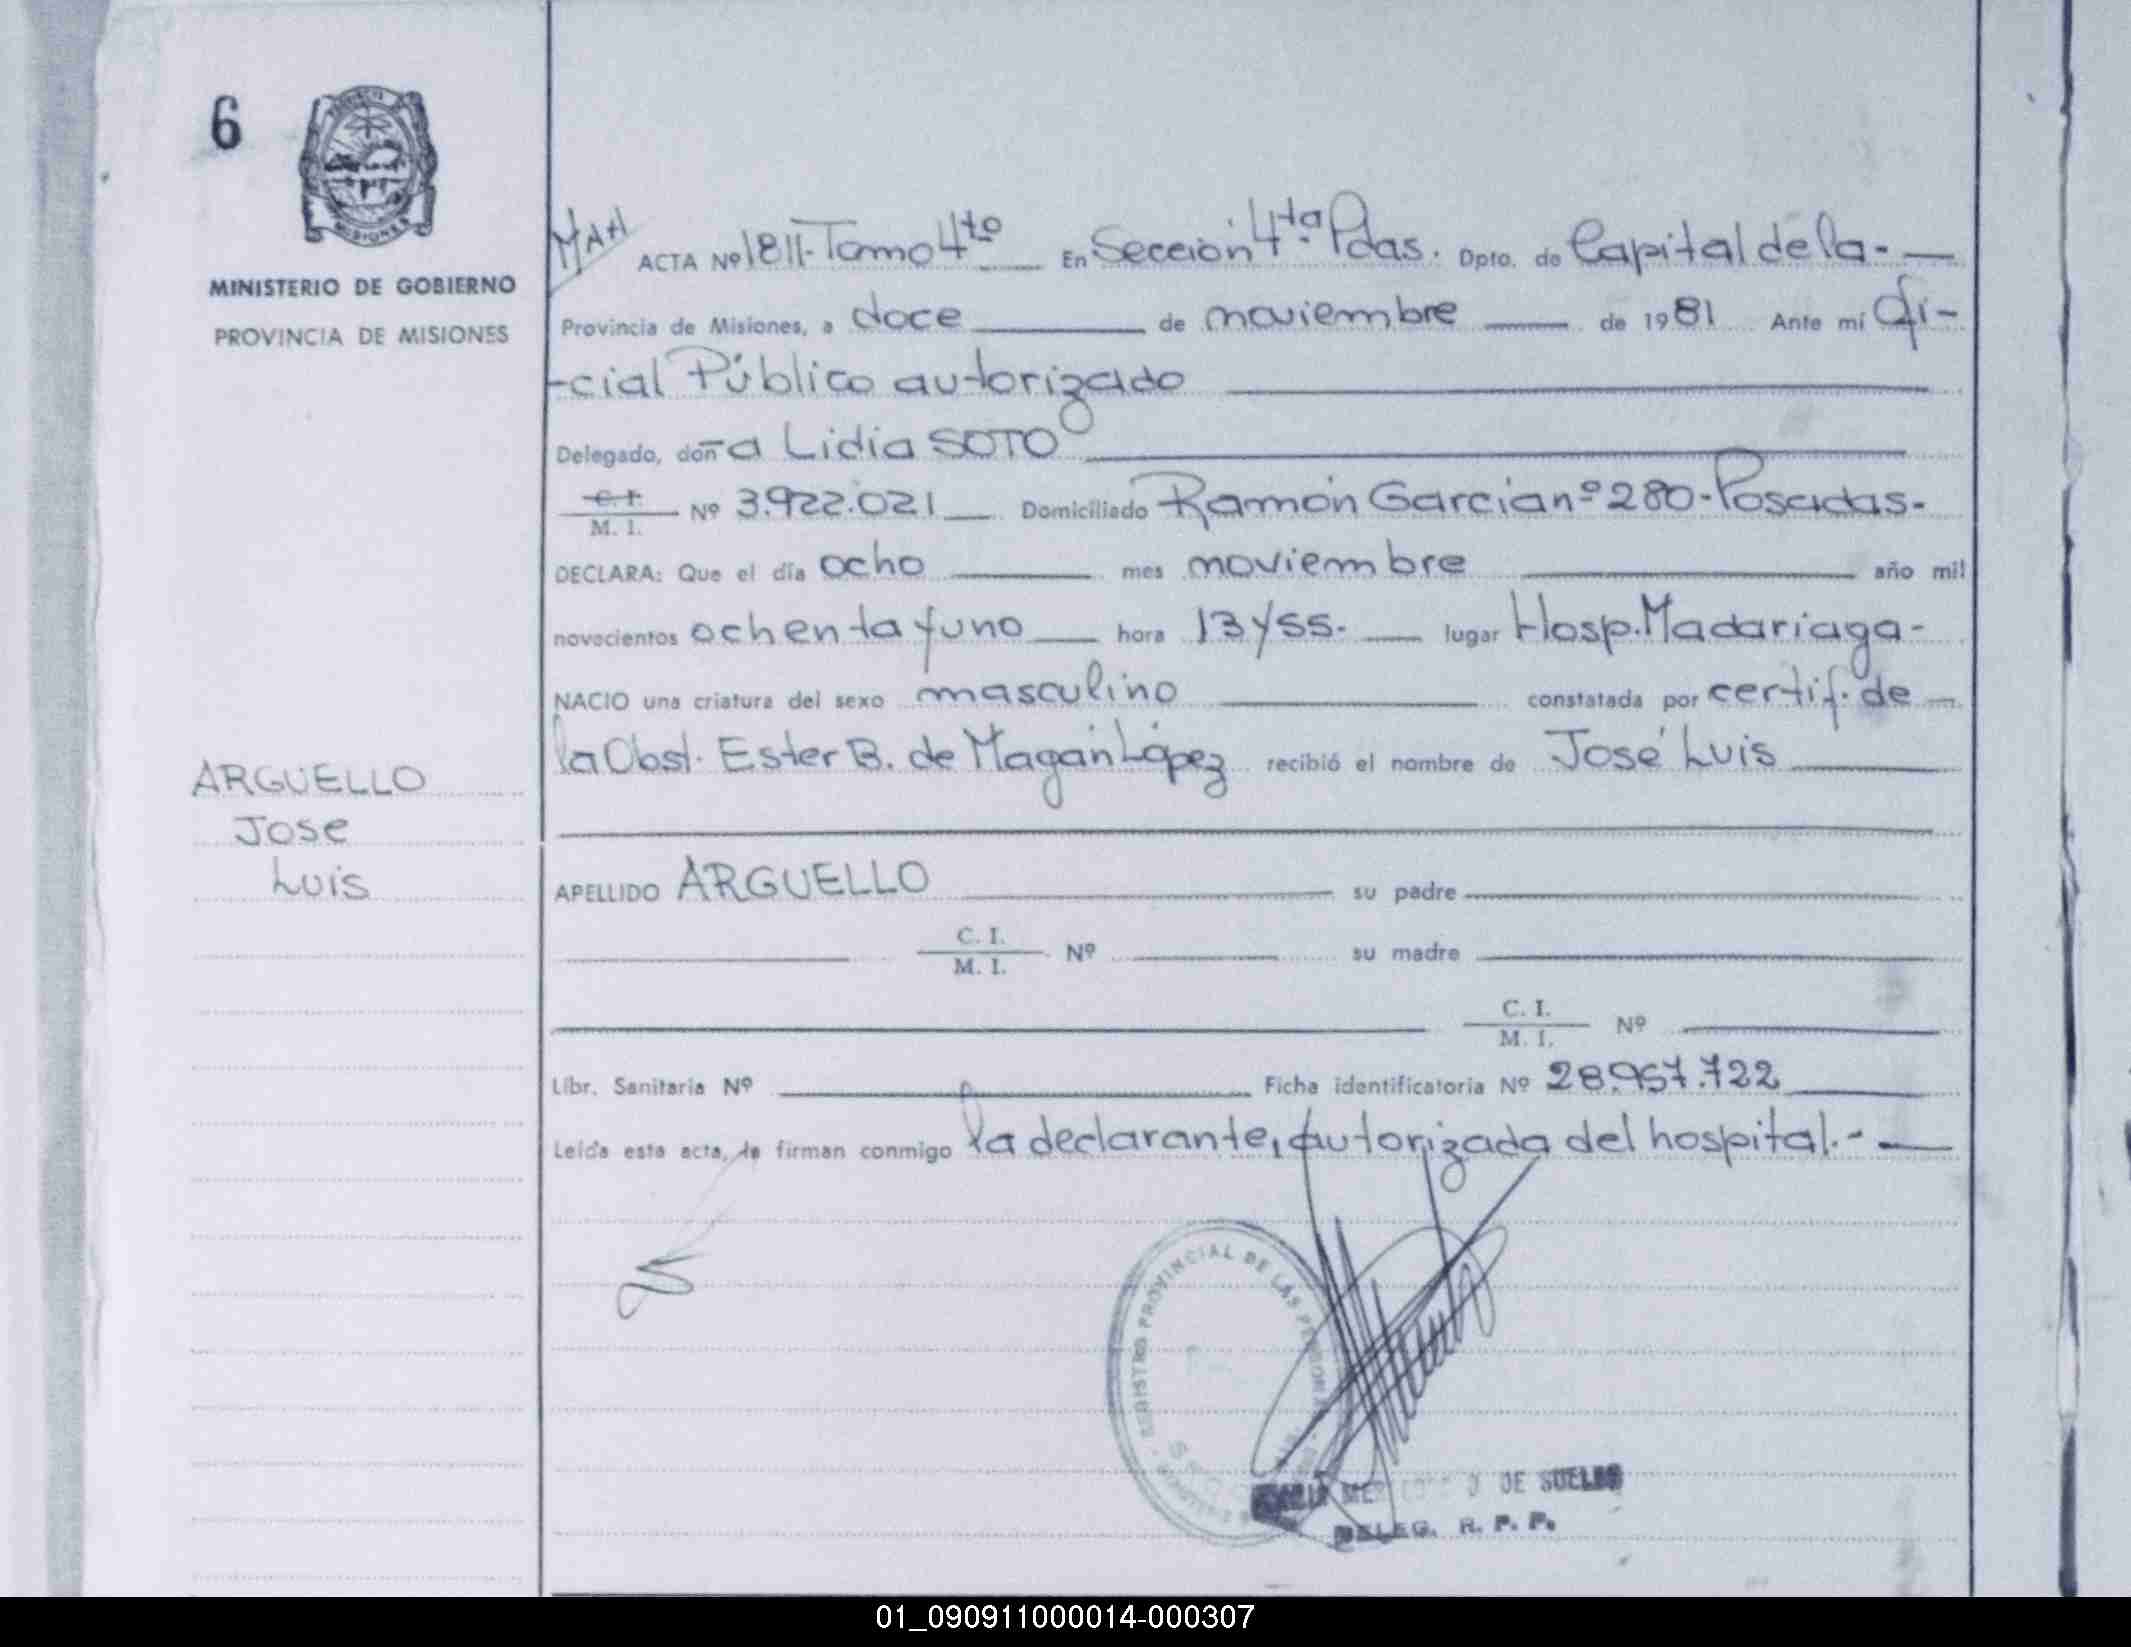 6
MINISTERIO DE GOBIERNO
PROVINCIA DE MISIONES
ARGUELLO
Jose
Luis
MAH ACTA Nº 1811-Tomo 4to En Sección 4ta Pdas. Dpto. de Capital de la.-
Provincia de Misiones, a doce de noviembre de 1981 Ante mí Ofi-
-cial Público autorizado
Delegado, doña Lidia SOTO
C. I. / M. I. Nº 3.922.021 Domiciliado Ramón García nº 280-Posadas-
DECLARA: Que el día ocho mes noviembre año mil
novecientos ochenta y uno hora 13 y 55.- lugar Hosp. Madariaga-
NACIO una criatura del sexo masculino constatada por certif. de
la Obst. Ester B. de Magán López recibió el nombre de José Luis
APELLIDO ARGUELLO su padre
C. I. / M. I. Nº su madre
C. I. / M. I. Nº
Libr. Sanitaria Nº Ficha identificatoria Nº 28.957.722
Leída esta acta, la firman conmigo la declarante, autorizada del hospital.-
REGISTRO PROVINCIAL DE LAS PERSONAS
DE SUELDO
DELEG. R. P. P.
01_090911000014-000307